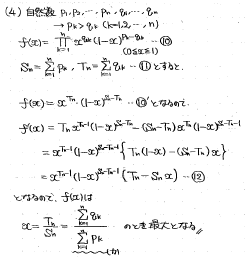 (4) 自然数 p₁, p₂, …, pₙ, q₁, …, qₙ
→ pₖ > qₖ (k=1,2,…,n)
f(x) = ∏ₖ₌₁ⁿ x^{qₖ}(1-x)^{pₖ-qₖ} … ⑩
(0≦x≦1)
Sₙ = Σₖ₌₁ⁿ pₖ, Tₙ = Σₖ₌₁ⁿ qₖ … ⑪ とすると.
f(x) = x^{Tₙ}・(1-x)^{Sₙ-Tₙ} … ⑩' となるので.
f'(x) = Tₙ x^{Tₙ-1}(1-x)^{Sₙ-Tₙ} - (Sₙ-Tₙ)x^{Tₙ}(1-x)^{Sₙ-Tₙ-1}
= x^{Tₙ-1}(1-x)^{Sₙ-Tₙ-1}{Tₙ(1-x) - (Sₙ-Tₙ)x}
= x^{Tₙ-1}(1-x)^{Sₙ-Tₙ-1}{Tₙ - Sₙx} … ⑫
となるので, f(x)は
x = Tₙ/Sₙ = Σₖ₌₁ⁿ qₖ / Σₖ₌₁ⁿ pₖ のとき最大となる